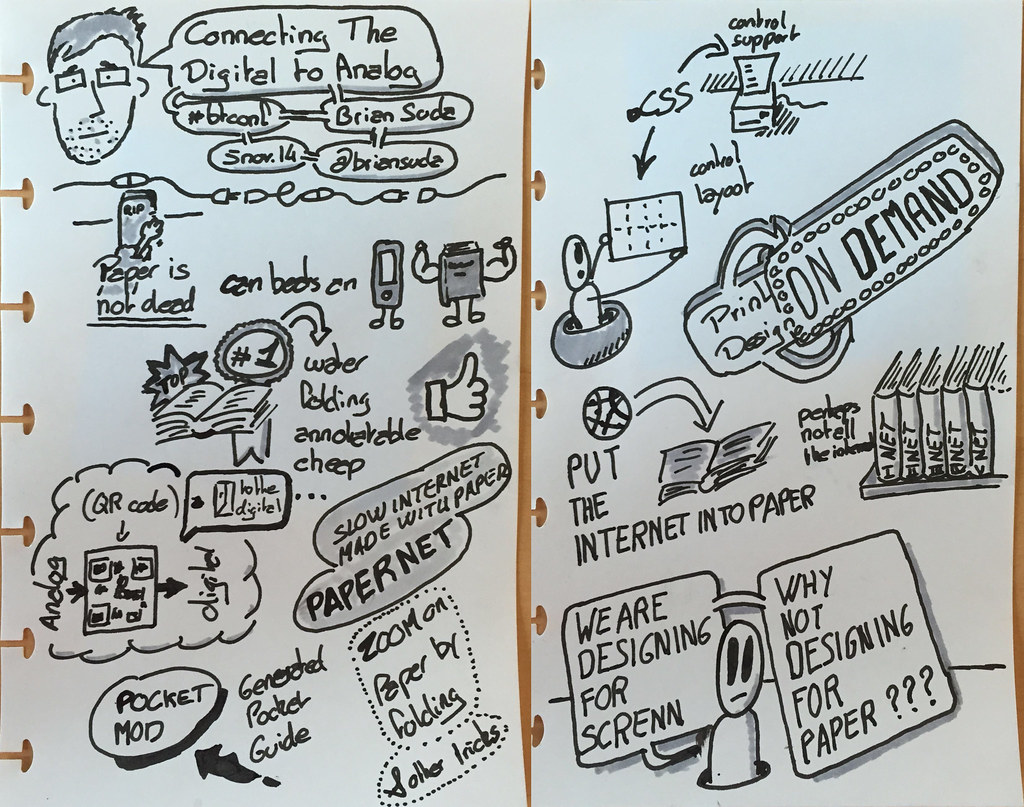 Connecting The
Digital to Analog
#btconf
Brian Suda
5nov.14
@briansuda
RIP
Paper is
not dead
can beats an
#1
TOP
water
folding
annotable
cheep
(QR code)
to the
digital
...
Analog
digital
SLOW INTERNET
MADE WITH PAPER
PAPERNET
ZOOM on
Paper by
folding
& other tricks
POCKET
MOD
Generated
Pocket
Guide
control
support
CSS
control
layout
Print
Design
ON DEMAND
PUT
THE
INTERNET INTO PAPER
perhaps
not all
the internet
NET
NET
NET
NET
NET
WE ARE
DESIGNING
FOR
SCRENN
WHY
NOT
DESIGNING
FOR
PAPER ???